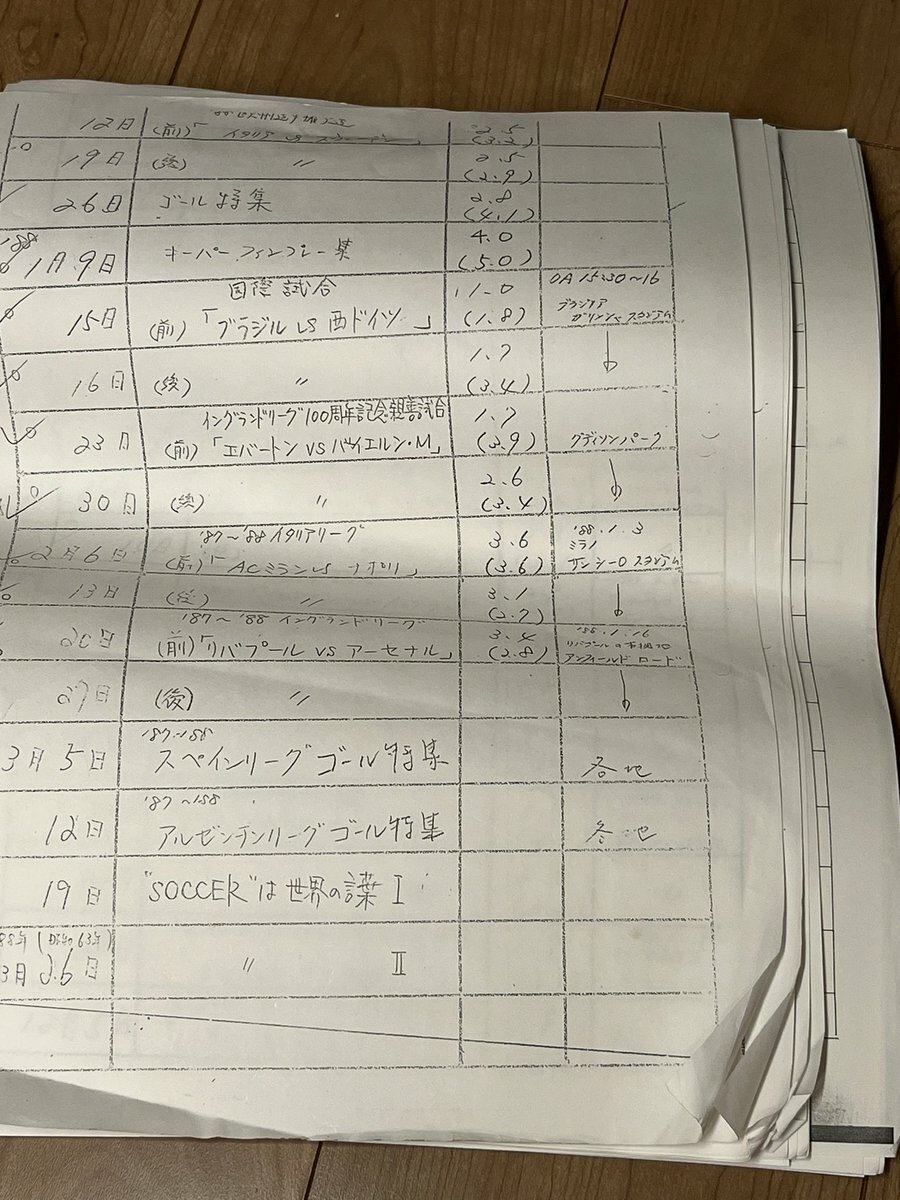 12日 (前)「イタリア vs スウェーデン」 2.5 (3.2)
19日 (後) 〃 2.5 (2.9)
26日 ゴール特集 2.8 (4.1)
'88
1月9日 キーパーファインプレー集 4.0 (5.0)
国際試合 OA 15:30〜16
15日 (前)「ブラジル vs 西ドイツ」 1.0 (1.8) ブラジリア
スタジアム
16日 (後) 〃 1.7 (3.4) ↓
イングランドリーグ100周年記念親善試合
23日 (前)「エバートン vs バイエルン・M」 1.7 (3.9) グディソンパーク
30日 (後) 〃 2.6 (3.4) ↓
'87〜'88 イタリアリーグ '88.1.3
ミラノ
2月6日 (前)「ACミラン vs ナポリ」 3.6 (3.6) サンシーロスタジアム
13日 (後) 〃 3.1 (3.7) ↓
'87〜'88 イングランドリーグ '88.1.16
20日 (前)「リバプール vs アーセナル」 3.4 (2.8) リバプールの本拠地
アンフィールドロード
27日 (後) 〃 ↓
'87〜'88
3月5日 スペインリーグ ゴール特集 各地
'87〜'88
12日 アルゼンチンリーグ ゴール特集 各地
19日 "SOCCER"は世界の言葉 I
88年(昭和63年)
3月26日 〃 II